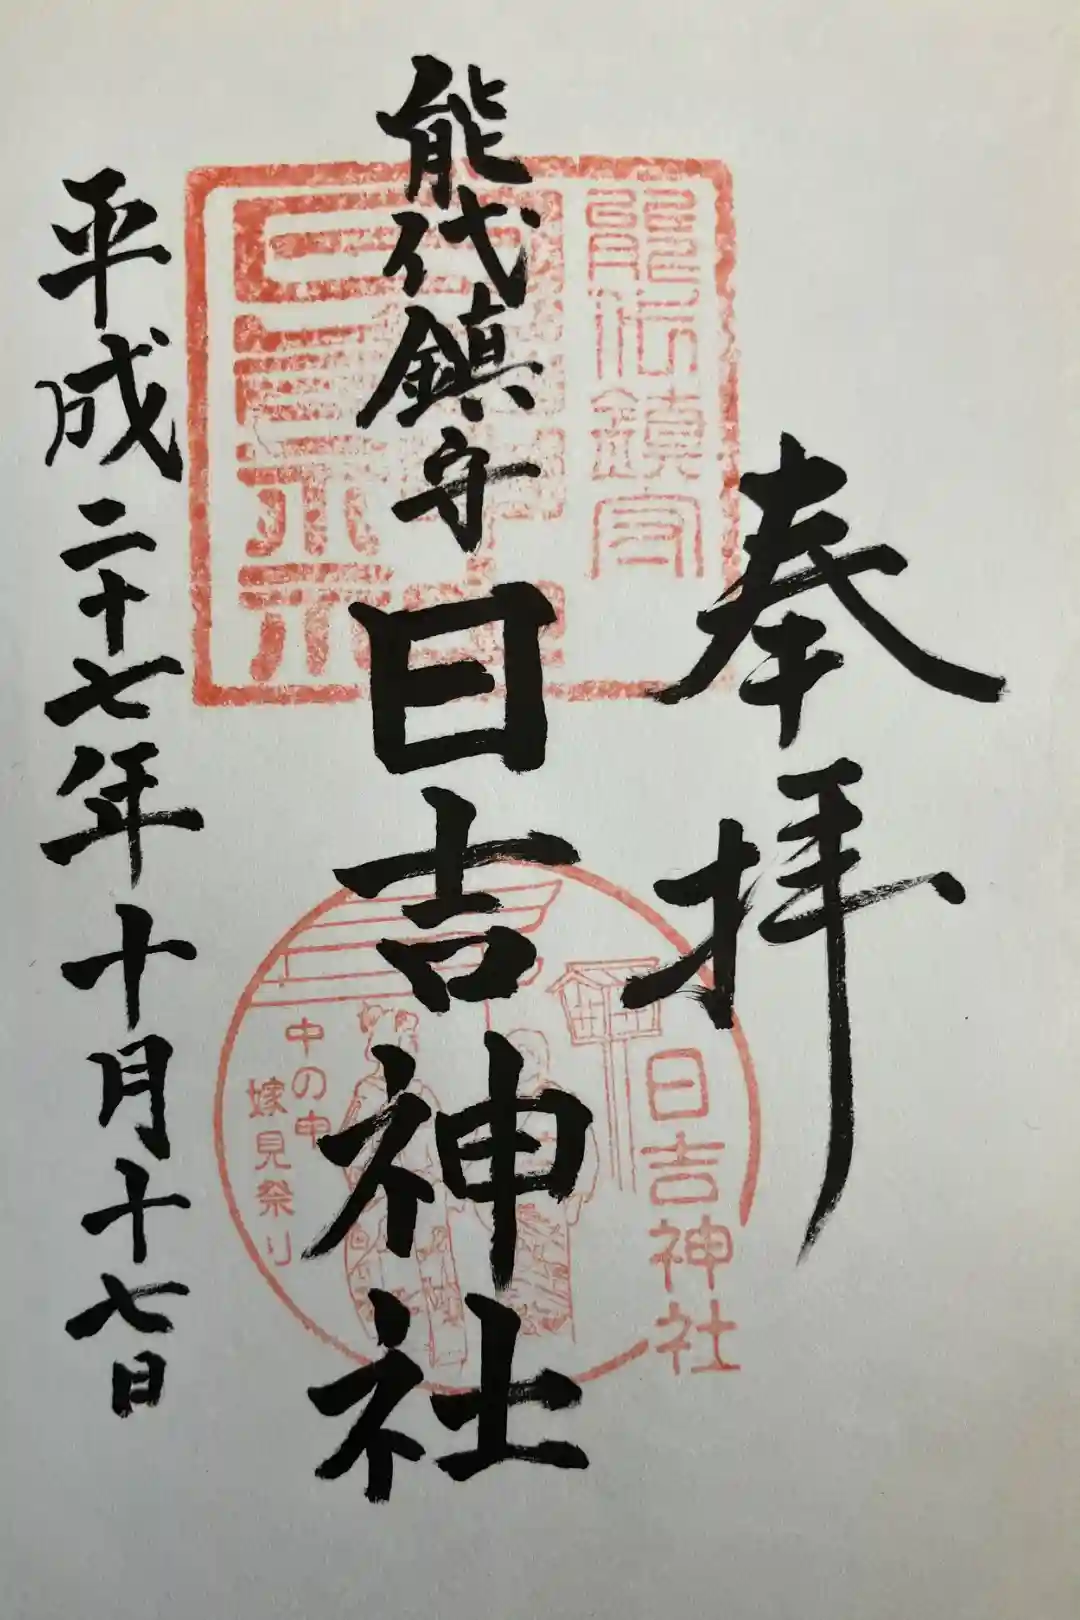 奉拝
能代鎮守 日吉神社
平成二十七年十月十七日
能代鎮守
日吉神社
中の申
嫁見祭り